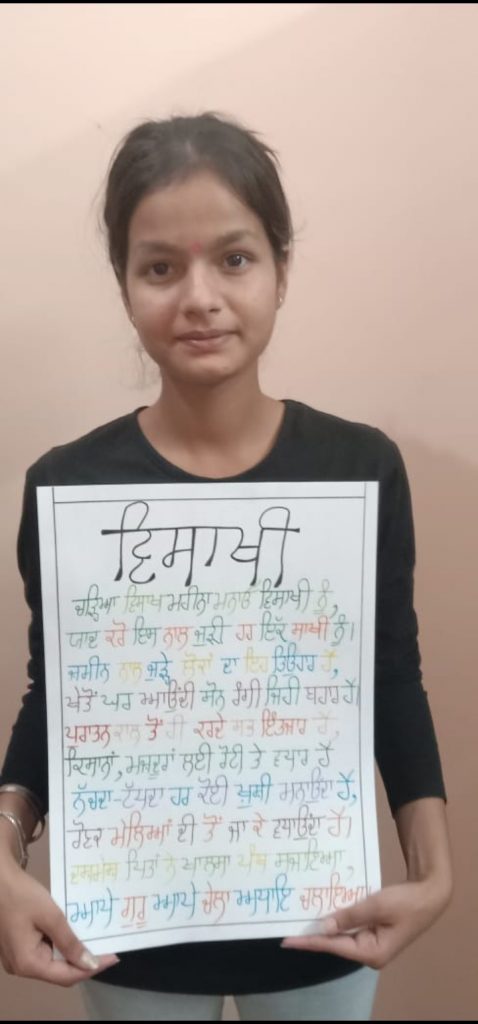 ਵਿਸਾਖੀ
ਚੜ੍ਹਿਆ ਵਿਸਾਖ ਮਹੀਨਾ ਮਨਾਓ ਵਿਸਾਖੀ ਨੂੰ,
ਯਾਦ ਕਰੋ ਇਸ ਨਾਲ ਜੁੜੀ ਹਰ ਇੱਕ ਸਾਖੀ ਨੂੰ।
ਜ਼ਮੀਨ ਨਾਲ ਜੁੜੇ ਲੋਕਾਂ ਦਾ ਇਹ ਤਿਉਹਾਰ ਹੈ,
ਖੇਤੋਂ ਘਰ ਆਉਂਦੀ ਸੋਨ ਰੰਗੀ ਜਿਹੀ ਬਹਾਰ ਹੈ।
ਪੁਰਾਤਨ ਕਾਲ ਤੋਂ ਹੀ ਕਰਦੇ ਸਭ ਇੰਤਜ਼ਾਰ ਹੈ,
ਕਿਸਾਨਾਂ, ਮਜ਼ਦੂਰਾਂ ਲਈ ਰੋਟੀ ਤੇ ਵਪਾਰ ਹੈ
ਨੱਚਦਾ-ਟੱਪਦਾ ਹਰ ਕੋਈ ਖੁਸ਼ੀ ਮਨਾਉਂਦਾ ਹੈ,
ਰੌਣਕ ਮੇਲਿਆਂ ਦੀ ਤੋਂ ਜਾ ਕੇ ਵਧਾਉਂਦਾ ਹੈ।
ਦਸ਼ਮੇਸ਼ ਪਿਤਾ ਨੇ ਖਾਲਸਾ ਪੰਥ ਸਜਾਇਆ,
ਆਪੇ ਗੁਰੂ ਆਪੇ ਚੇਲਾ ਅਖਵਾਇ ਚਲਾਇਆ।